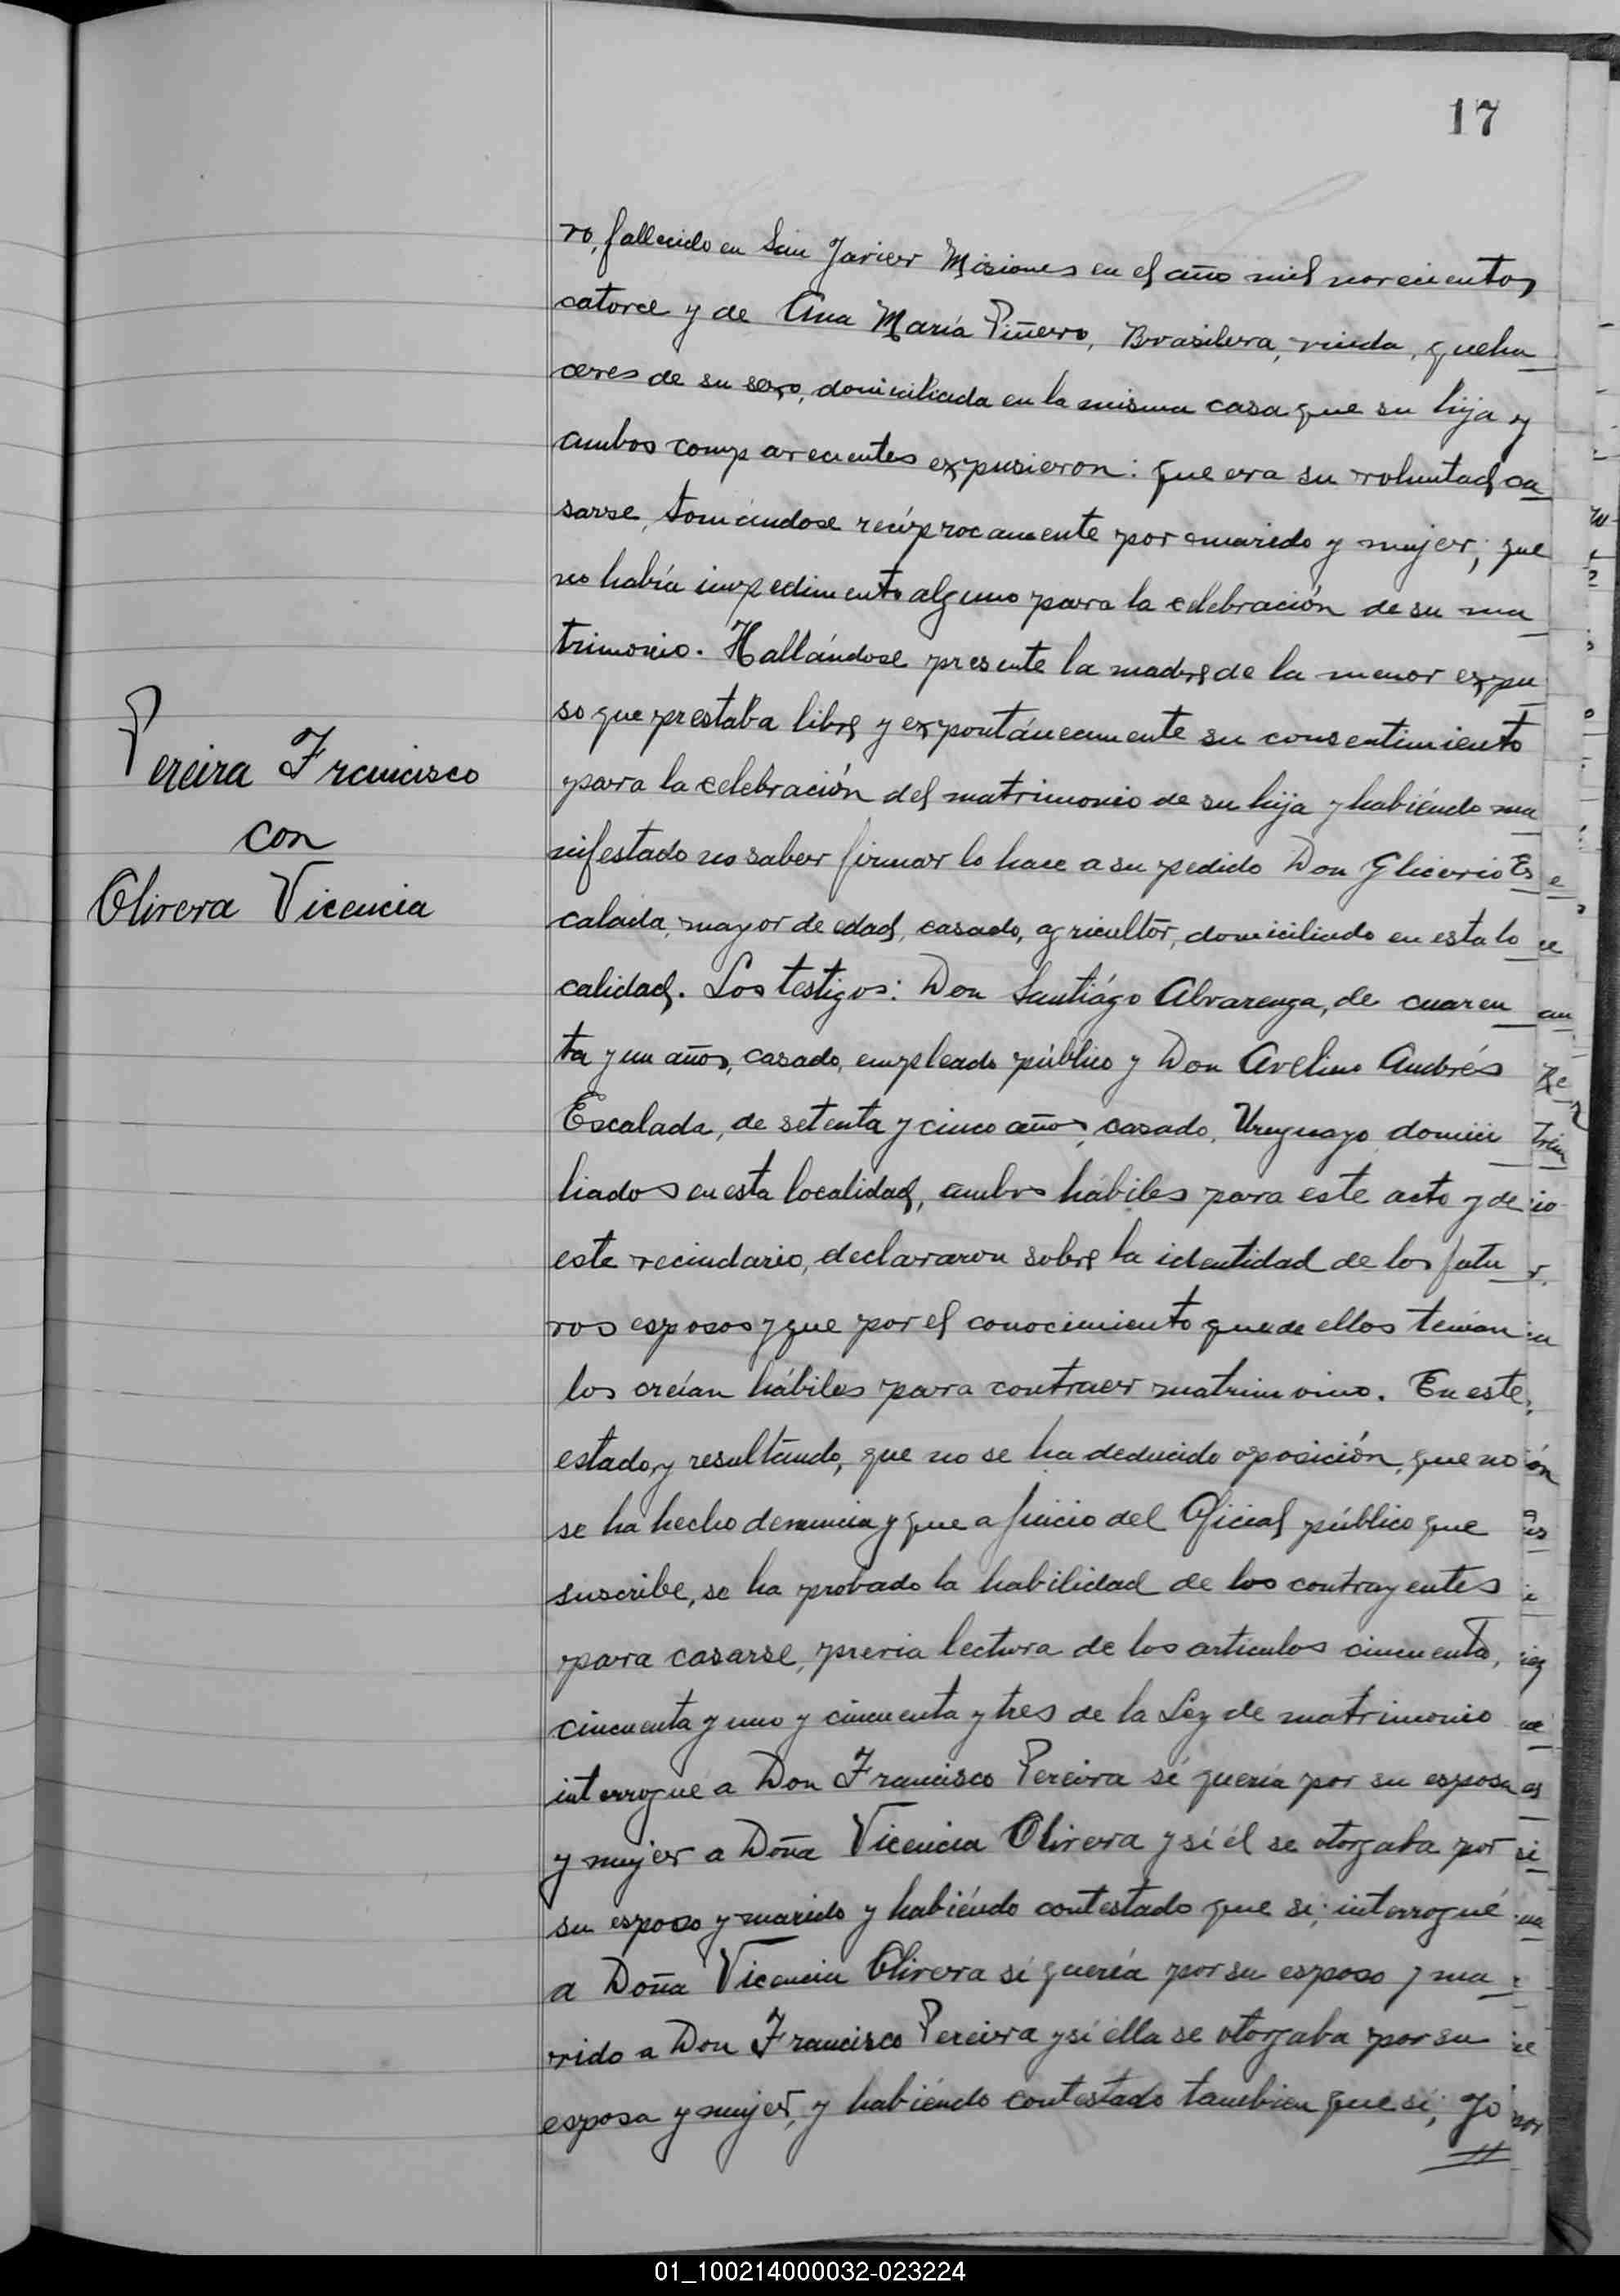 17
ro, fallecido en San Javier Misiones en el año mil novecientos
catorce y de Ana María Piñero, Brasilera, viuda, queha
ceres de su sexo, domiciliada en la misma casa que su hija y
ambos comparecientes expusieron: que era su voluntad ca
sarse, tomándose recíprocamente por marido y mujer; que
no había impedimento alguno para la celebración de su ma
trimonio. Hallándose presente la madre de la menor expu
so que prestaba libre y expontáneamente su consentimiento
para la celebración del matrimonio de su hija y habiéndo ma
nifestado no saber firmar lo hace a su pedido Don Glicerio Es
calada, mayor de edad, casado, agricultor, domiciliado en esta lo
calidad. Los testigos: Don Santiágo Alvarenga, de cuaren
ta y un años, casado, empleado público y Don Avelino Andrés
Escalada, de setenta y cinco años, casado, Uruguayo, domici
liados en esta localidad, ambos hábiles para este acto y de
este vecindario, declararon sobre la identidad de los futu
ros esposos y que por el conocimiento que de ellos tenían
los creían hábiles para contraer matrimonio. En este
estado, y resultando, que no se ha deducido oposición, que no
se ha hecho denuncia y que a juicio del Oficial público que
suscribe, se ha probado la habilidad de los contrayentes
para casarse, previa lectura de los artículos cincuenta,
cincuenta y uno y cincuenta y tres de la Ley de matrimonio
interrogué a Don Francisco Pereira sí quería por su esposa
y mujer a Doña Vicencia Olivera y sí él se otorgaba por
su esposo y marido y habiéndo contestado que sí; interrogué
a Doña Vicencia Olivera sí quería por su esposo y ma
rido a Don Francisco Pereira y sí ella se otorgaba por su
esposa y mujer, y habiéndo contestado tambien que sí; Yo
Pereira Francisco
con
Olivera Vicencia
01_100214000032-023224